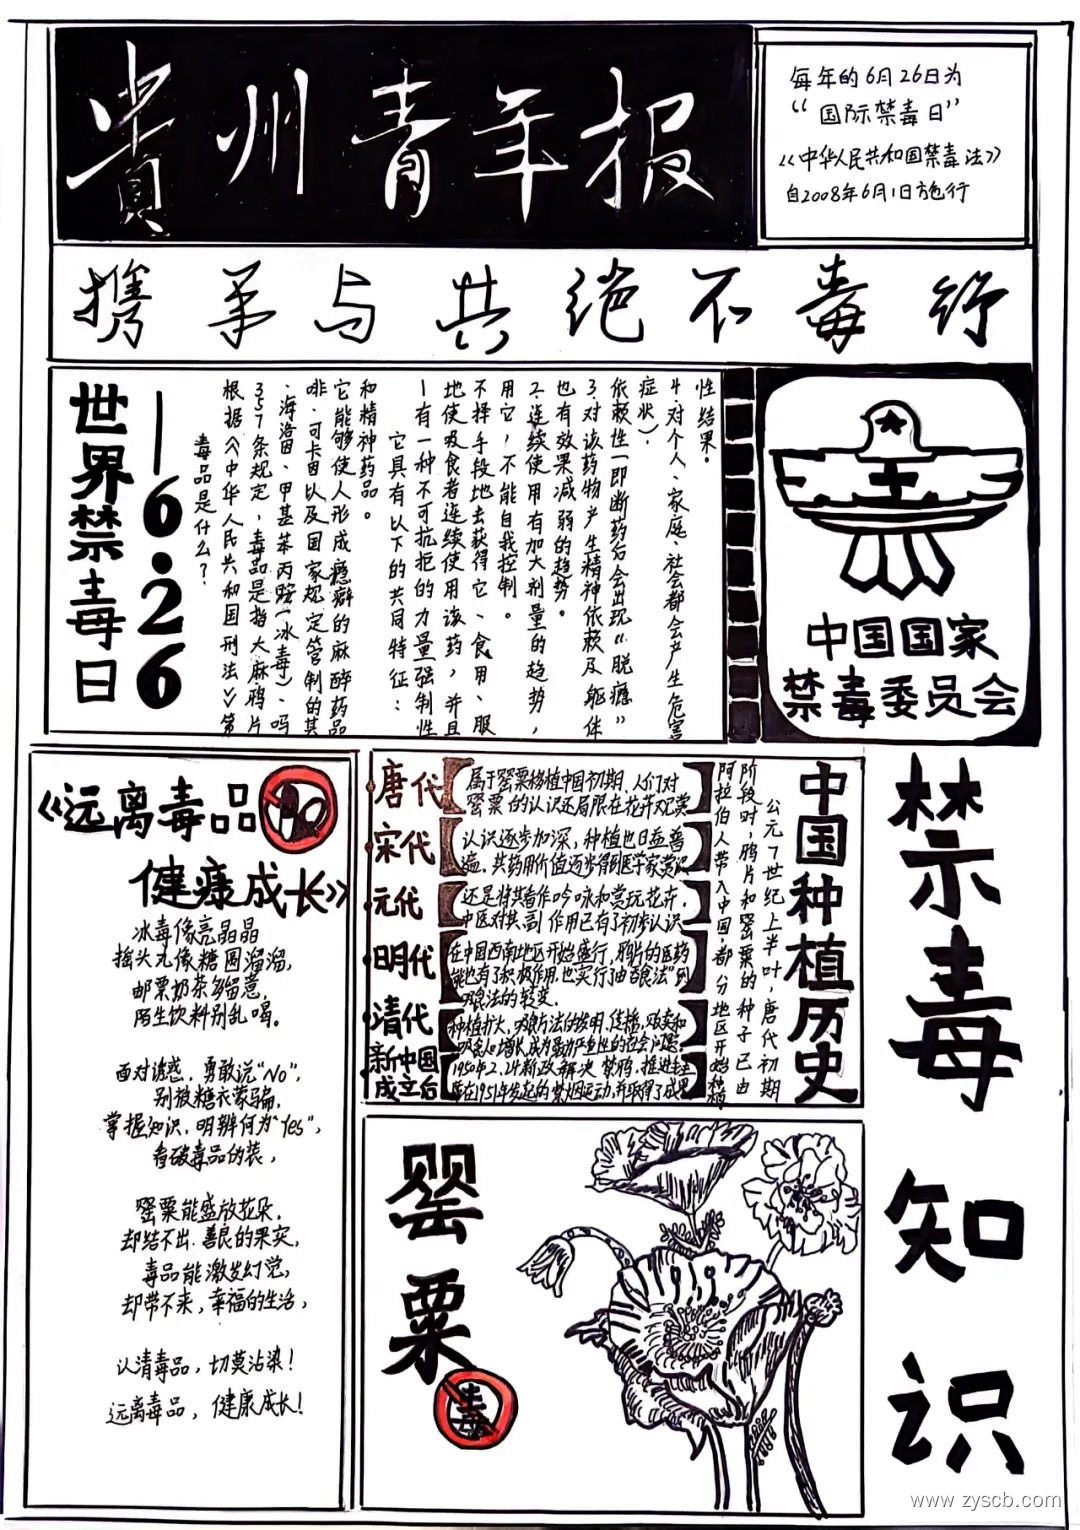 貴州青年报
每年的6月26日为
“国际禁毒日”
《中华人民共和国禁毒法》
自2008年6月1日施行
携手与共绝不毒行
世界禁毒日
—6.26
毒品是什么？
根据《中华人民共和国刑法》第
357条规定，毒品是指大麻鸦片
、海洛因、甲基苯丙胺（冰毒）、吗
啡、可卡因以及国家规定管制的其
它能够使人形成瘾癖的麻醉药品
和精神药品。
它具有以下的共同特征：
1有一种不可抗拒的力量强制性
地使吸食者连续使用该药，并且
不择手段地去获得它、食用、服
用它，不能自我控制。
2.连续使用有加大剂量的趋势，
也有效果减弱的趋势。
3.对该药物产生精神依赖及躯体
依赖性（即断药后会出现“脱瘾”
症状）。
4.对个人、家庭、社会都会产生危害
性结果。
中国国家
禁毒委员会
《远离毒品
健康成长》
冰毒像亮晶晶
摇头丸像糖圆溜溜，
邮票奶茶多留意，
陌生饮料别乱喝。
面对诱惑，勇敢说“No”，
别被糖衣蒙骗，
掌握知识，明辨何为“Yes”，
看破毒品的装，
罂粟能盛放花朵，
却结不出善良的果实，
毒品能激发幻觉，
却带不来，幸福的生活，
认清毒品，切莫沾染！
远离毒品，健康成长！
中国种植历史
公元7世纪上半叶，唐代初期
阶段时，鸦片和罂粟的种子已由
阿拉伯人带入中国，部分地区开始种植
唐代
属于罂粟移植中国初期，人们对
罂粟的认识还局限在花卉观赏
宋代
认识逐步加深，种植也日益普
遍，其药用价值逐步得到医学家赏识
元代
还是将其看作吟咏和赏玩花卉，
中医对其副作用已有了初步认识
明代
在中国西南地区开始盛行，鸦片的医药
能也有了积极作用，也实行了由“吞食法”到
吸食法的转变.
清代
种植扩大，吸食方法的发明，传播，贩卖和
吸食人口增长，成为最为严重的社会问题.
新中国
成立后
1950年2.24新政解决禁鸦，推进
在1951年发起的禁烟运动，并取得了成果
罂粟
毒
禁毒知识
www.zyscb.com